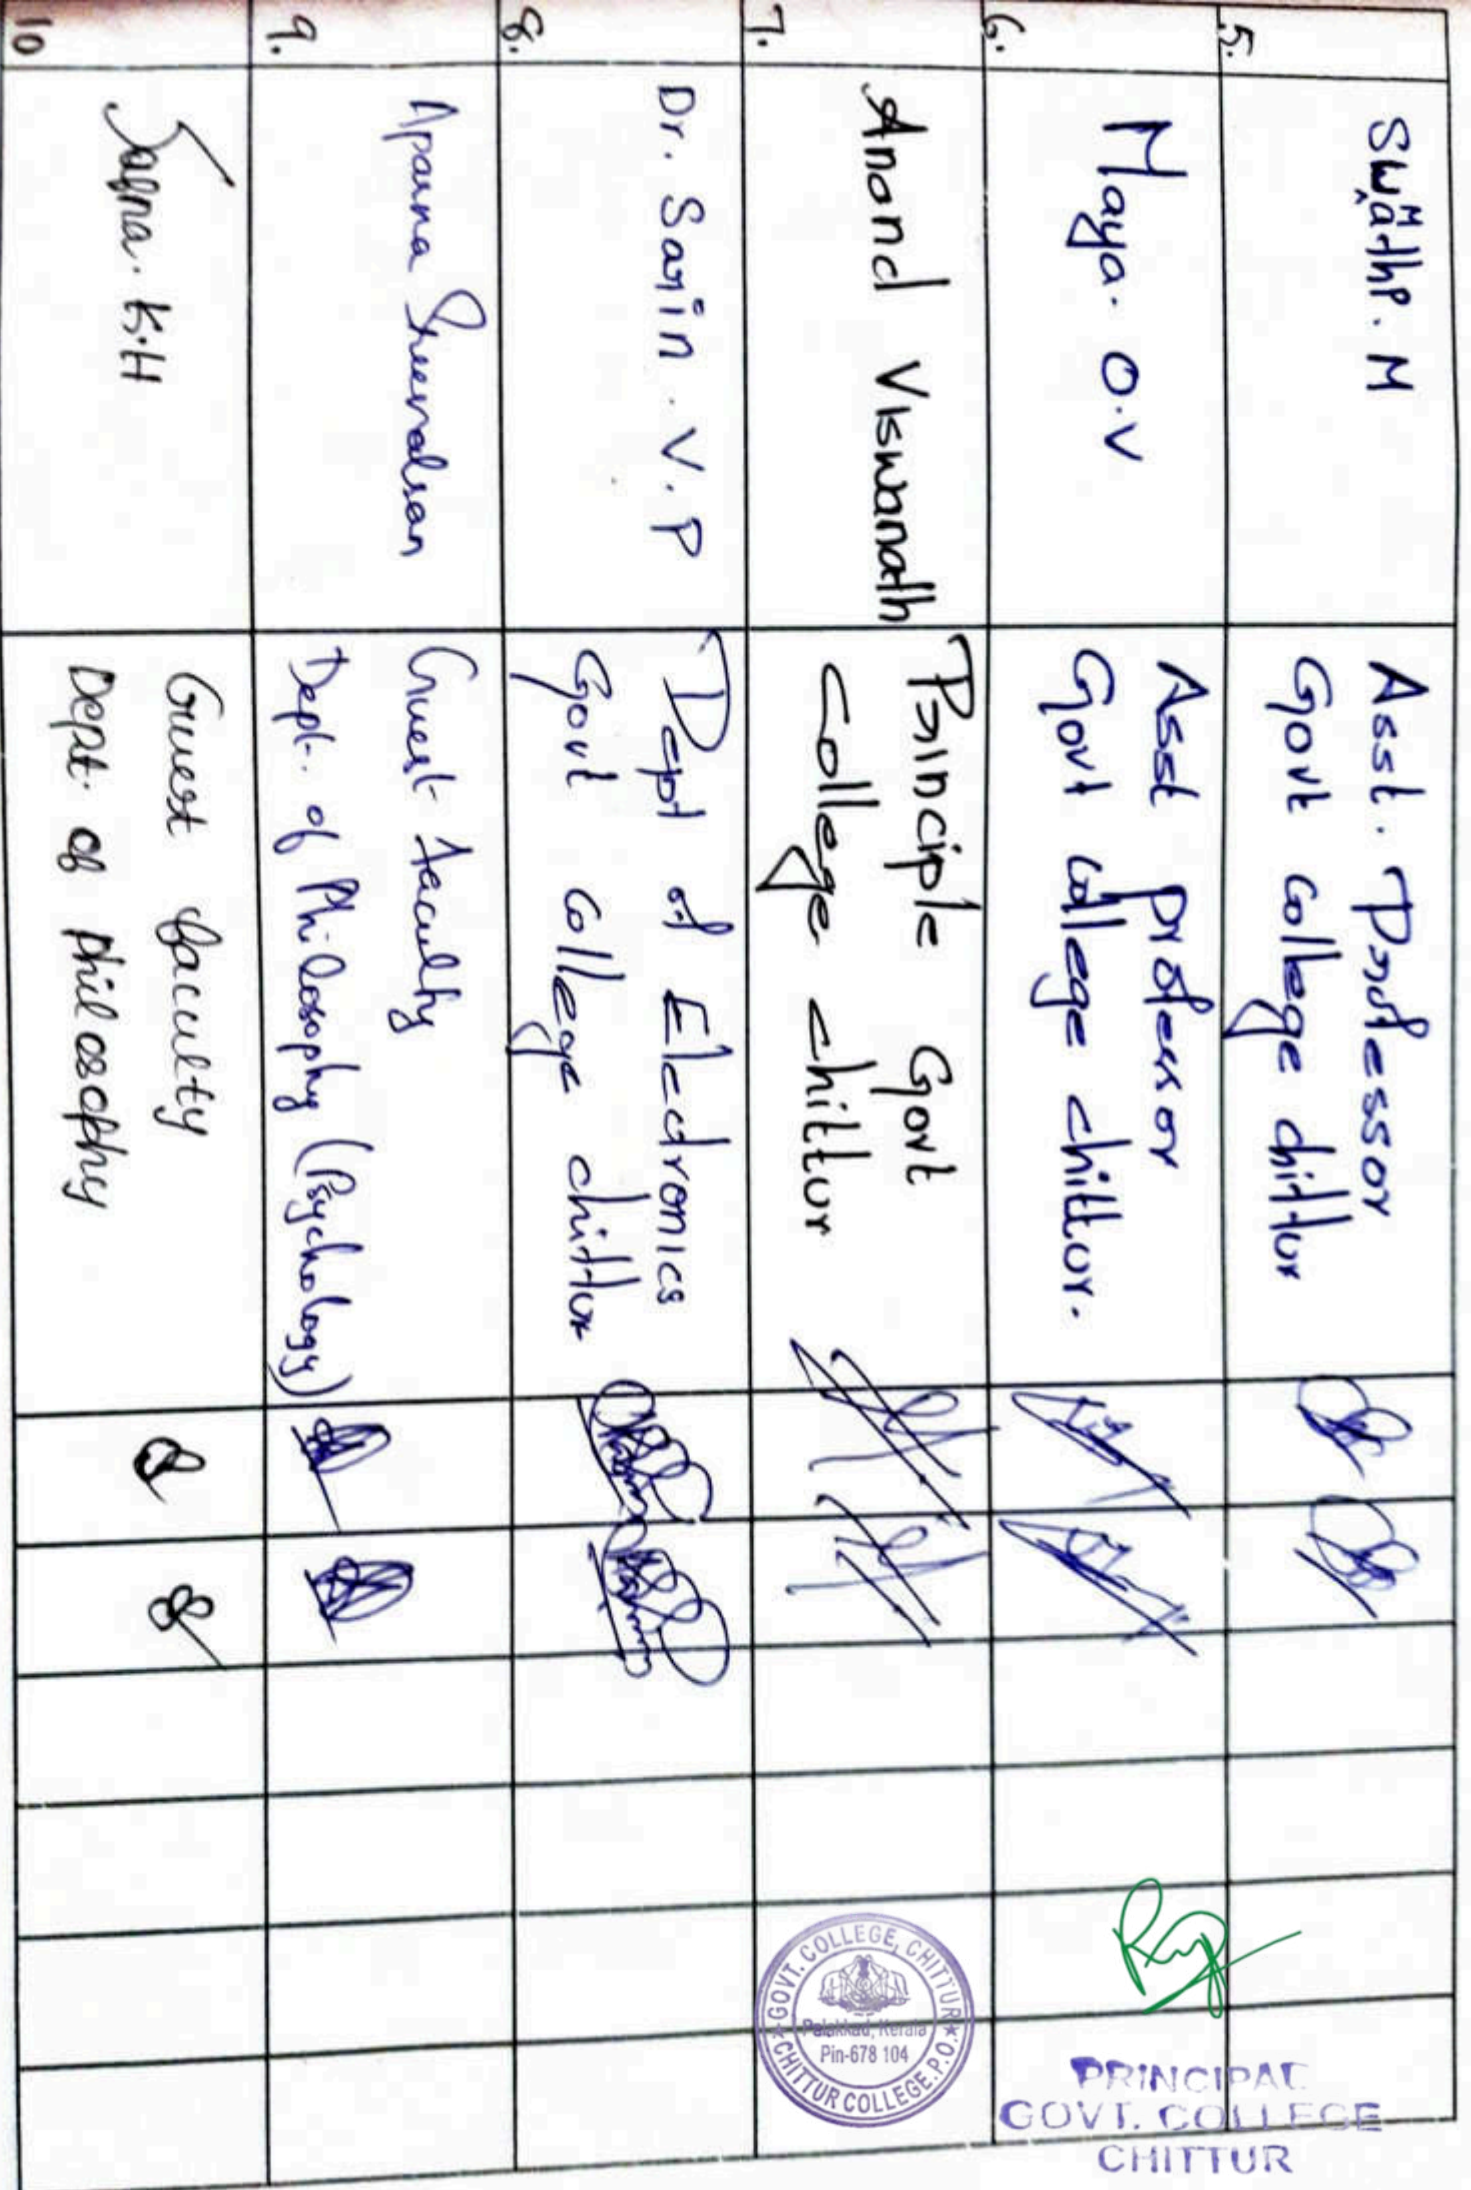 5.
Asst. Professor
Govt college chittur
6.
Maya. O.V
Asst professor
Govt college chittur.
7.
Anand Viswanath
Principle Govt
college chittur
8.
Dr. Sarin. V. P
Dept of Electronics
Govt college chittur
9.
Aparna Sreevalsan
Guest faculty
Dept. of Philosophy (Psychology)
10
K.H
Guest faculty
Dept. of Philosophy
GOVT. COLLEGE, CHITTUR
Palakkad, Kerala
Pin-678 104
CHITTUR COLLEGE.P.O.
PRINCIPAL
GOVT. COLLEGE
CHITTUR